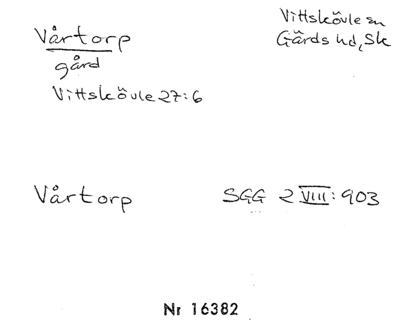 Vårtorp
Vittskövle sn
Gärds hd, Sk
gård
Vittskövle 27:6
Vårtorp SGG 2 VIII: 903
Nr 16382